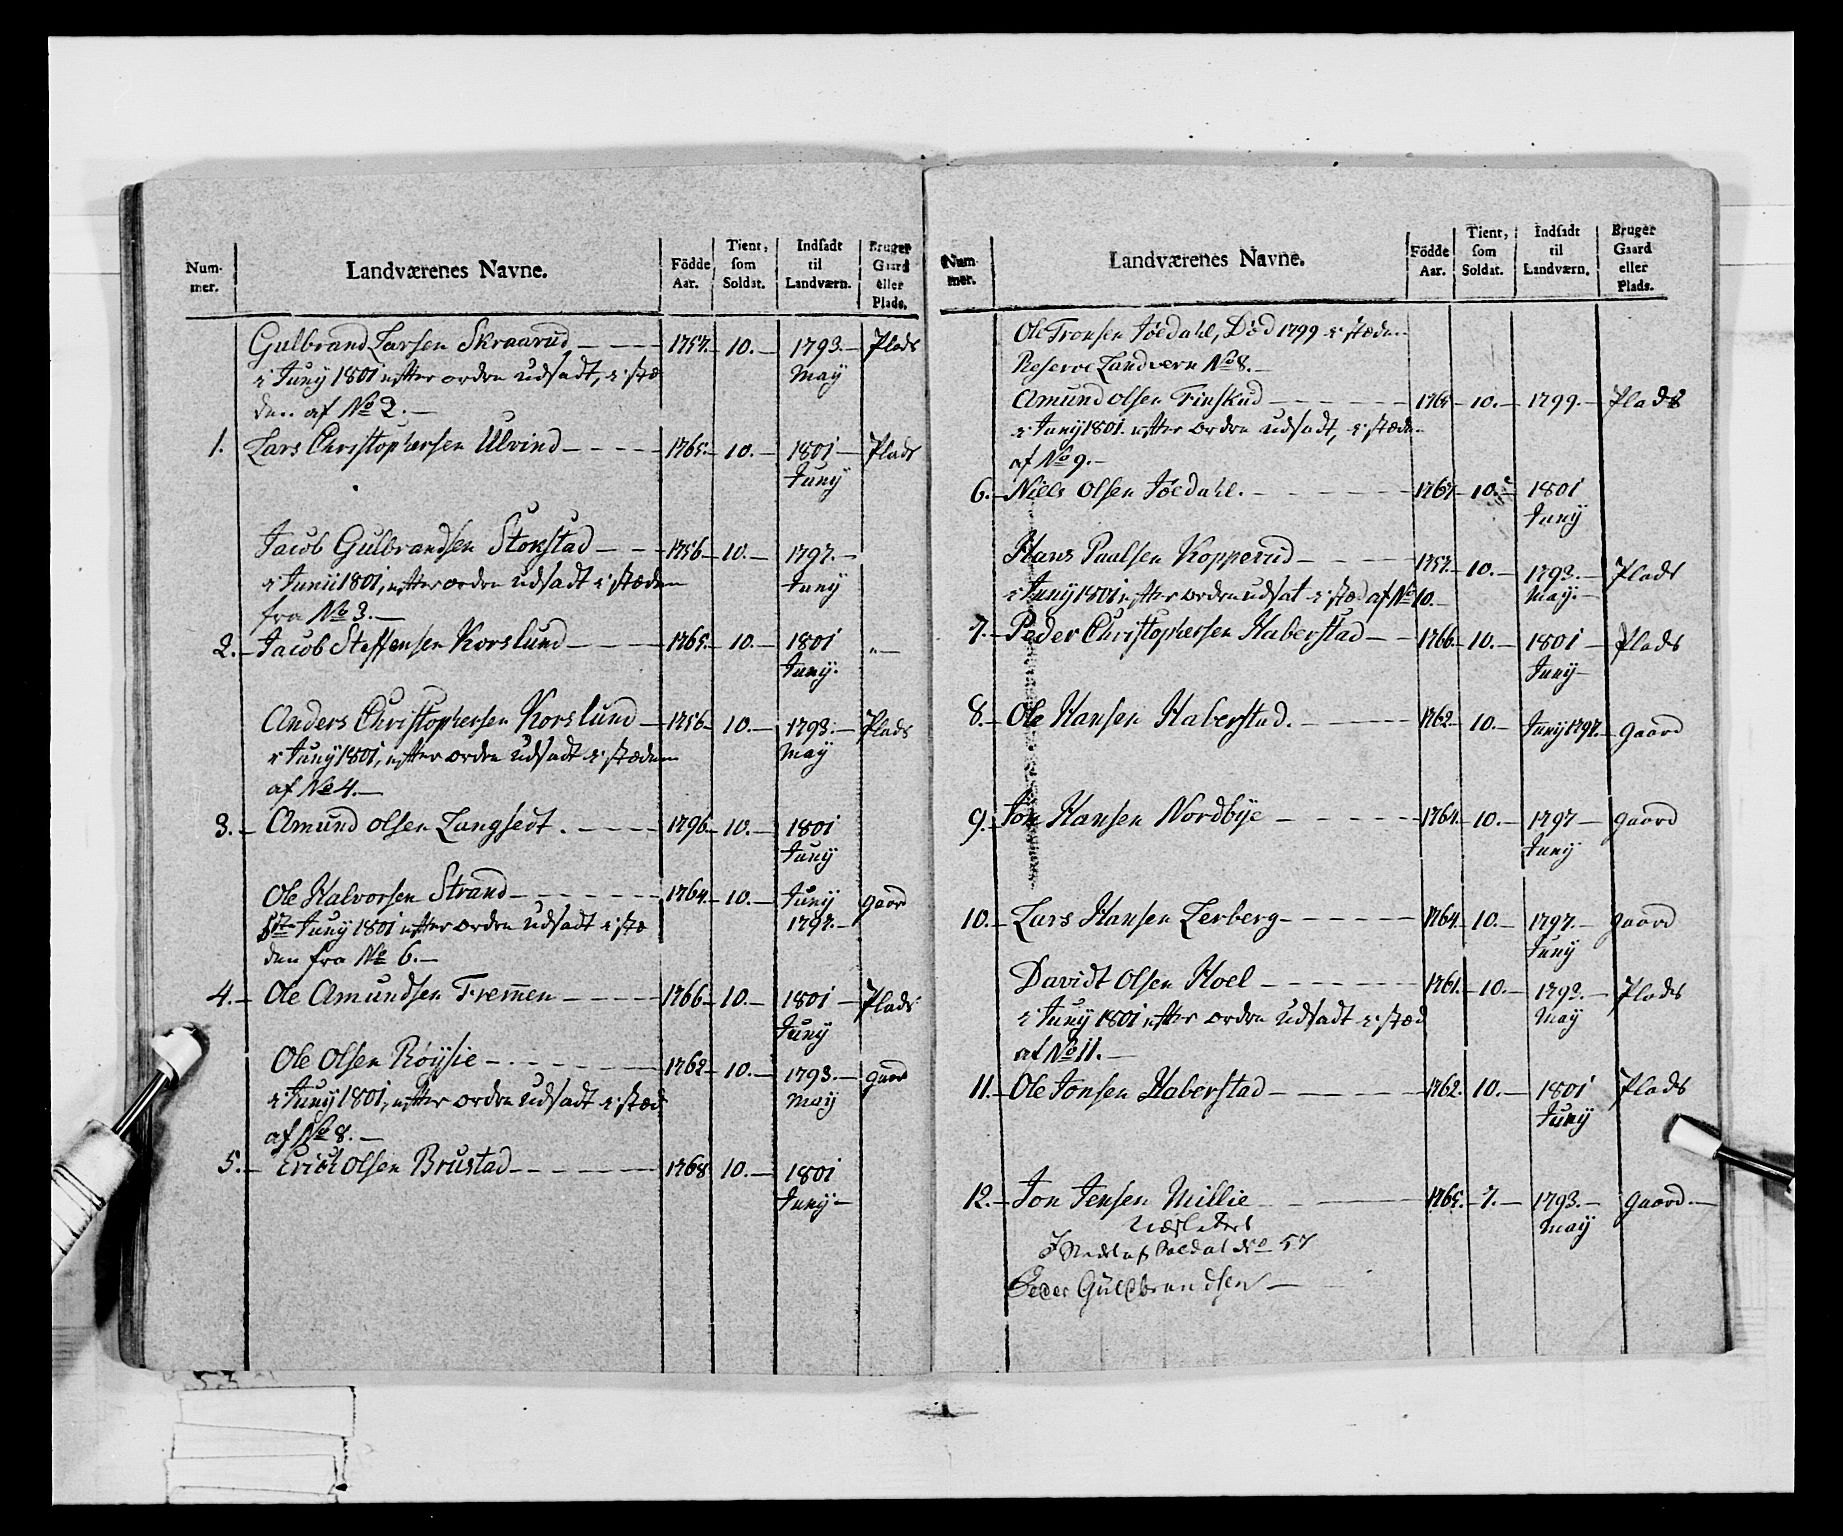 Num-
mer.
Landværenes Navne.
Födde
Aar.
Tient,
som
Soldat.
Indsadt
til
Landværn.
Bruger
Gaard
eller
Plads.
Gulbrand Larsen Skraarud — 1757. 10. — 1793. — Plads
i Juny 1801 efter ordre udsadt, i stæ May
den af No 2. —
1. Lars Christophersen Ulvind — 1765. 10. — 1801 — Plads
Juny
Jacob Gulbrandsen Storstad — 1756 — 10. — 1797. —
i Junii 1801, efter ordre udsadt i stæden Juny
fra No 3. —
2. — Jacob Steffensen Korslund — 1765. 10. — 1801 „—
Juny.
Anders Christophersen Korslund — 1756 — 10. — 1793. — Plads
i Juny 1801, efter ordre udsadt i stæden May
af No 4. —
3. — Amund olsen Langsedt. — 1796 — 10. — 1801
Juny
Ole Halvorsen Strand — 1764. 10. — Juny gaard
Juny 1801 efter ordre udsadt i stæ 1797. —
den fra No 6. —
4. — Ole Amundsen Fremmen — 1766 — 10. — 1801 — Plads
Juny
Ole Olsen Röysie — 1762 — 10. — 1793. — gaard
i Juny 1801, efter ordre udsadt i stæd May
af No 8. —
5. — Erich olsen Brustad — 1768 10. — 1801
Juny —
Num-
mer.
Landværenes Navne.
Födde
Aar.
Tient,
som
Soldat.
Indsadt
til
Landværn.
Bruger
Gaard
eller
Plads.
Ole Tronsen Jöedahl, Död 1799 i stæden
Reserve Landværn No 8. —
Amund olsen Finskud — 1765 — 10. — 1799. — Plads
i Juny 1801. efter ordre udsadt, i stæden
af No 9. —
6. — Niels Olsen Jöedahl. — 1767 — 10. — 1801
Juny
Hans Paalsen Kopperud — 1757. — 10. — 1793. — Plads
i Juny 1801 efter ordre udsat i stæd af No 10. — May. —
7. — Peder Christophersen Haberstad — 1766 — 10. — 1801 — Plads
Juny —
8. — Ole Hansen Haberstad. — 1762 — 10. — Juny 1797. — gaard
9. — Jon Hansen Nordbye — 1764. — 10. — 1797 — gaard
Juny
10. — Lars Hansen Lerberg — 1764 — 10. — 1797. — gaard
Juny
Davidt Olsen Hoel — 1761. — 10. — 1793. — Plads
i Juny 1801 efter ordre udsadt i stæd May
af No 11. —
11. — Ole Jonsen Haberstad — 1762. 10. — 1801 Plads
Juny
12. — Jon Jensen Millie — 1765. — 7. — 1793. — gaard. —
May
I Stedet af Soldat No 57
Peder Guldbrandsen —